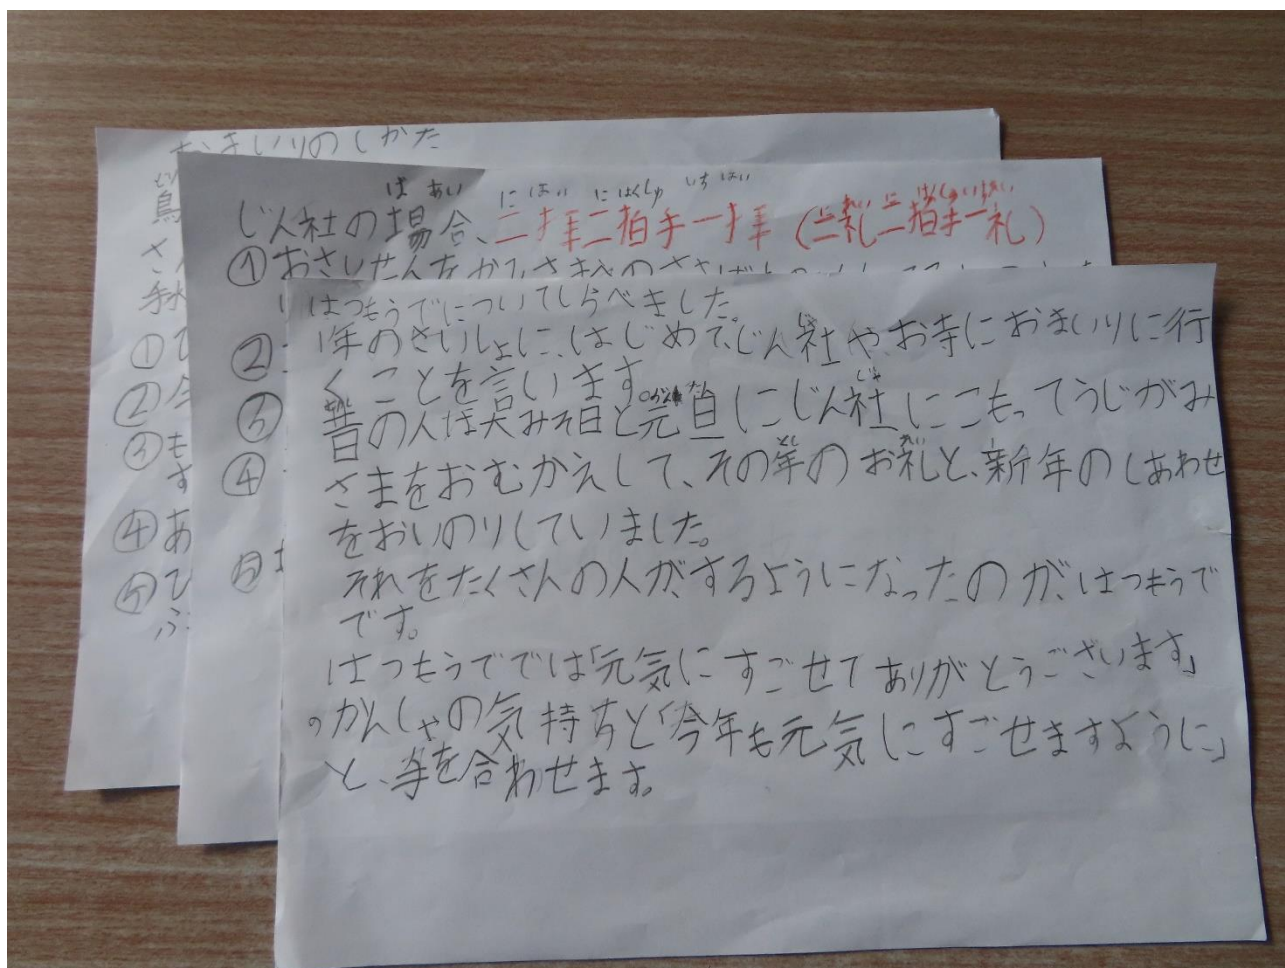 おまいりのしかた
鳥
さ
手水
①ひ
②今
③も
す
④あ
⑤ひ
ふ
ばあい にはい にはくしゅ いちはい
じん社の場合、二拝二拍手一拝(二礼二拍手一礼)
①おさいせんを
②
③
④
⑤
はつもうでについてしらべました。
1年のさいしょに、はじめて、じん社や、お寺におまいりに行
くことを言います。
昔の人は大みそ日と元旦にじん社にこもってうじがみ
さまをおむかえして、その年のお礼と、新年のしあわせ
をおいのりしていました。
それをたくさんの人が、するようになったのが、はつもうで
です。
はつもうででは「元気にすごせてありがとうございます」
のかんしゃの気持ちと「今年も元気にすごせますように」
と、手を合わせます。